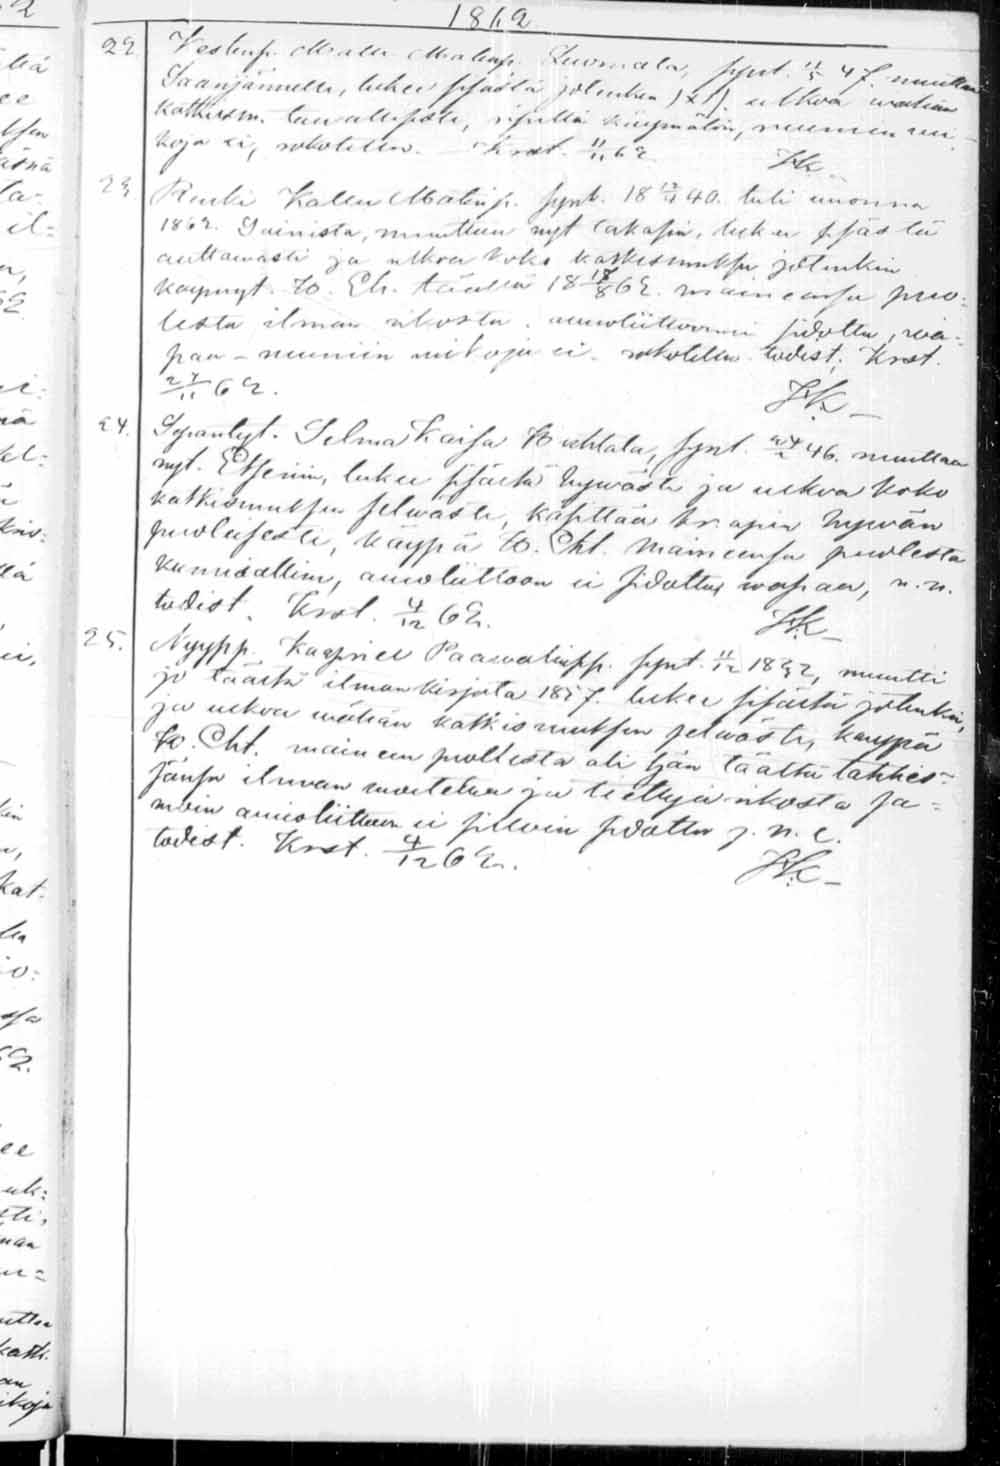 1862
22. Matts. Luomala, synt. 11/5 47. muuttaa
Saarijärvelle, lukee sisästä jotenkin (x1). ulkoa wähän
katkism. tawallisesti, ripillä käymätön, muumen mi-
koja ei, rokotettu. Krst. 11/11 62. HK
23. Renki Kalle Matinp. synt. 18 40. tuli wuonna
1862. muuttaa nyt takasin, lukee sisästä
auttawasti ja ulkoa koko katkismuksen jotenkin
käynyt H. Eh. täällä 18 17/8 62. maineensa puo-
lesta ilman rikosta. awioliittoonni sidottu, wa-
paa - muuniin mikoja ei. rokotettu todist. Krst.
27/11 62. HK -
24. Selma Kaisa synt. 24/2 46. muuttaa
nyt. Etseriin, lukee sisästä hywästi ja ulkoa koko
katkismuksen selwästi, käsittää kr. opin hywän
puoleisesti, käypä H. Eht. maineensa puolesta
kunniallinen, awioliittoon ei sidottu wapaa, n. n.
todist. Krst. 4/12 62. HK -
25. Nyypp. Kaapriel Paawalinpp. synt. 11/12 1832, muutti
jo täältä ilman kirjata 1857. lukee sisästä jotenkin,
ja ulkoa wähän katkismuksen selwästi, käypä
H. Eht. maineen puolesta oli hän täältä lähties-
sänsä ilman moitetta ja tiettyjä rikosta sa-
moin awioliittoon ei silloin sidottu j. n. e.
todist. Krst. 4/12 62. HK -